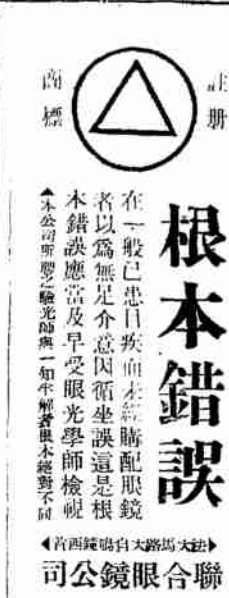 註册
商標
根本錯誤
在一般已患目疾而未經購配眼鏡
者以爲無足介意因循坐誤這是根
本錯誤應當及早受眼光學師檢視
▲本公司所聘之驗光師與一知半解者根本絕對不同
法大馬路大自鳴鐘西首
聯合眼鏡公司